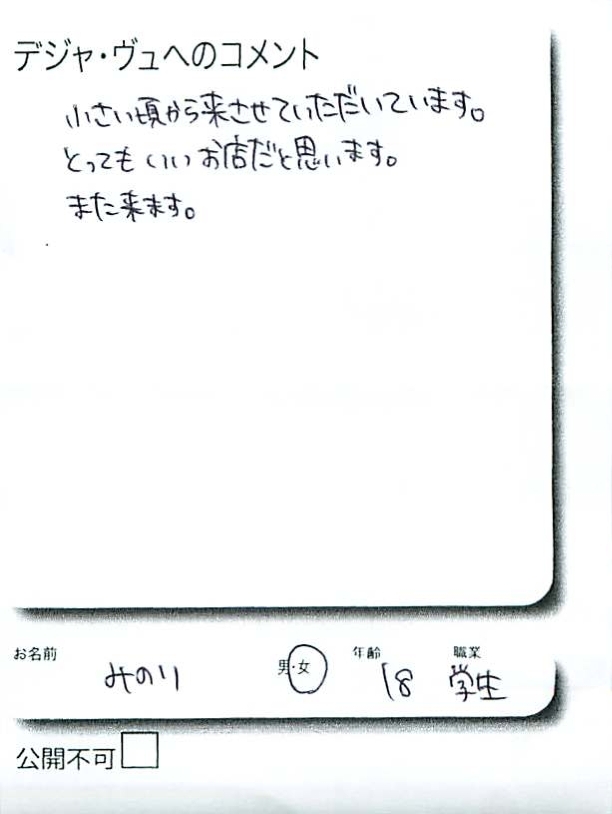 デジャ・ヴュへのコメント
小さい頃から来させていただいています。
とってもいいお店だと思います。
また来ます。
お名前 みのり 男・女 年齢 18 職業 学生
公開不可